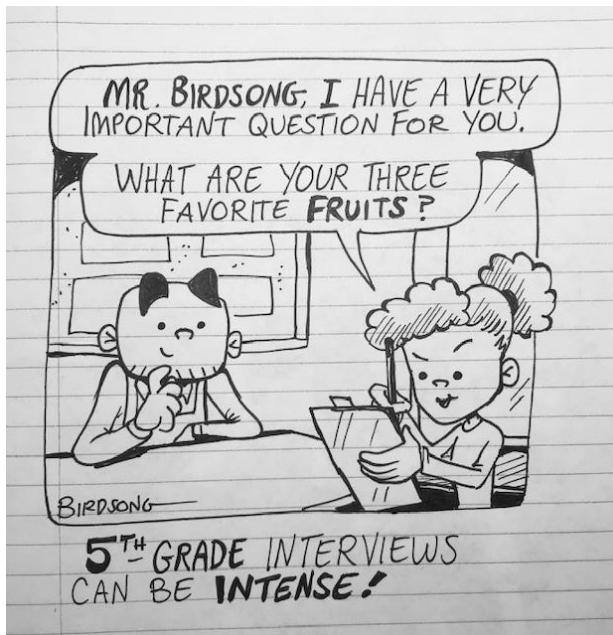 MR. BIRDSONG, I HAVE A VERY
IMPORTANT QUESTION FOR YOU.
WHAT ARE YOUR THREE
FAVORITE FRUITS?
BIRDSONG
5TH GRADE INTERVIEWS
CAN BE INTENSE!